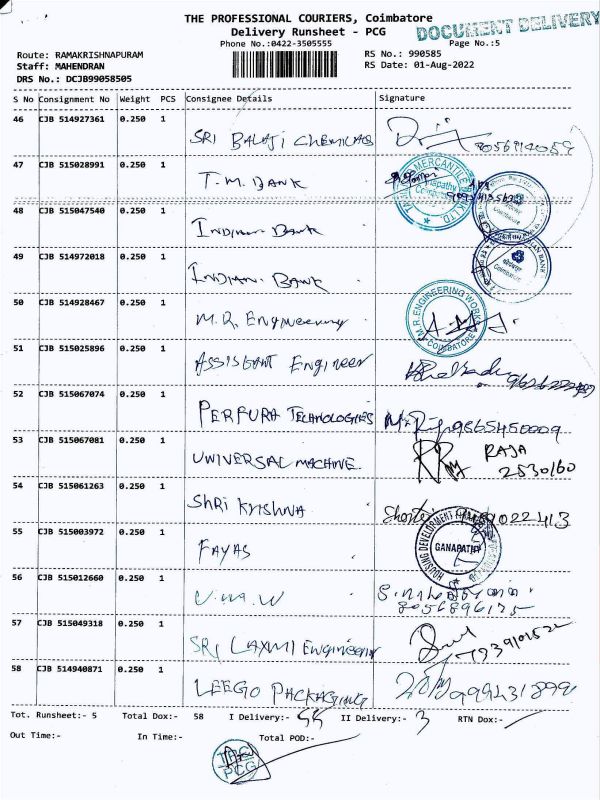 THE PROFESSIONAL COURIERS, Coimbatore
DOCUMENT DELIVERY
Delivery Runsheet - PCG
Phone No.:0422-3505555
Page No.:5
Route: RAMAKRISHNAPURAM
RS No.: 990585
Staff: MAHENDRAN
RS Date: 01-Aug-2022
DRS No.: DCJB99058505
S No Consignment No Weight PCS Consignee Details Signature
46 CJB 514927361 0.250 1 SRI BALAJI CHEMICALS
47 CJB 515028991 0.250 1 T.M. BANK
48 CJB 515047540 0.250 1 INDIAN BANK
49 CJB 514972018 0.250 1 INDIAN BANK
50 CJB 514928467 0.250 1 M.R. Engineering
M.R. ENGINEERING WORKS
COIMBATORE
51 CJB 515025896 0.250 1 ASSISTANT Engineer
52 CJB 515067074 0.250 1 PERFURA TECHNOLOGIES 9865450009
53 CJB 515067081 0.250 1 UNIVERSAL MACHINE RAJA
2530160
54 CJB 515061263 0.250 1 Shri KRISHNA
55 CJB 515003972 0.250 1 FAYAS
HOUSING DEVELOPMENT
GANAPATHY
56 CJB 515012660 0.250 1
8056896175
57 CJB 515049318 0.250 1 SRI LAXMI Engineering
58 CJB 514940871 0.250 1 LEEGO PACKAGING
Tot. Runsheet:- 5 Total Dox:- 58 I Delivery:- 55 II Delivery:- 3 RTN Dox:-
Out Time:- In Time:- Total POD:-
PCG